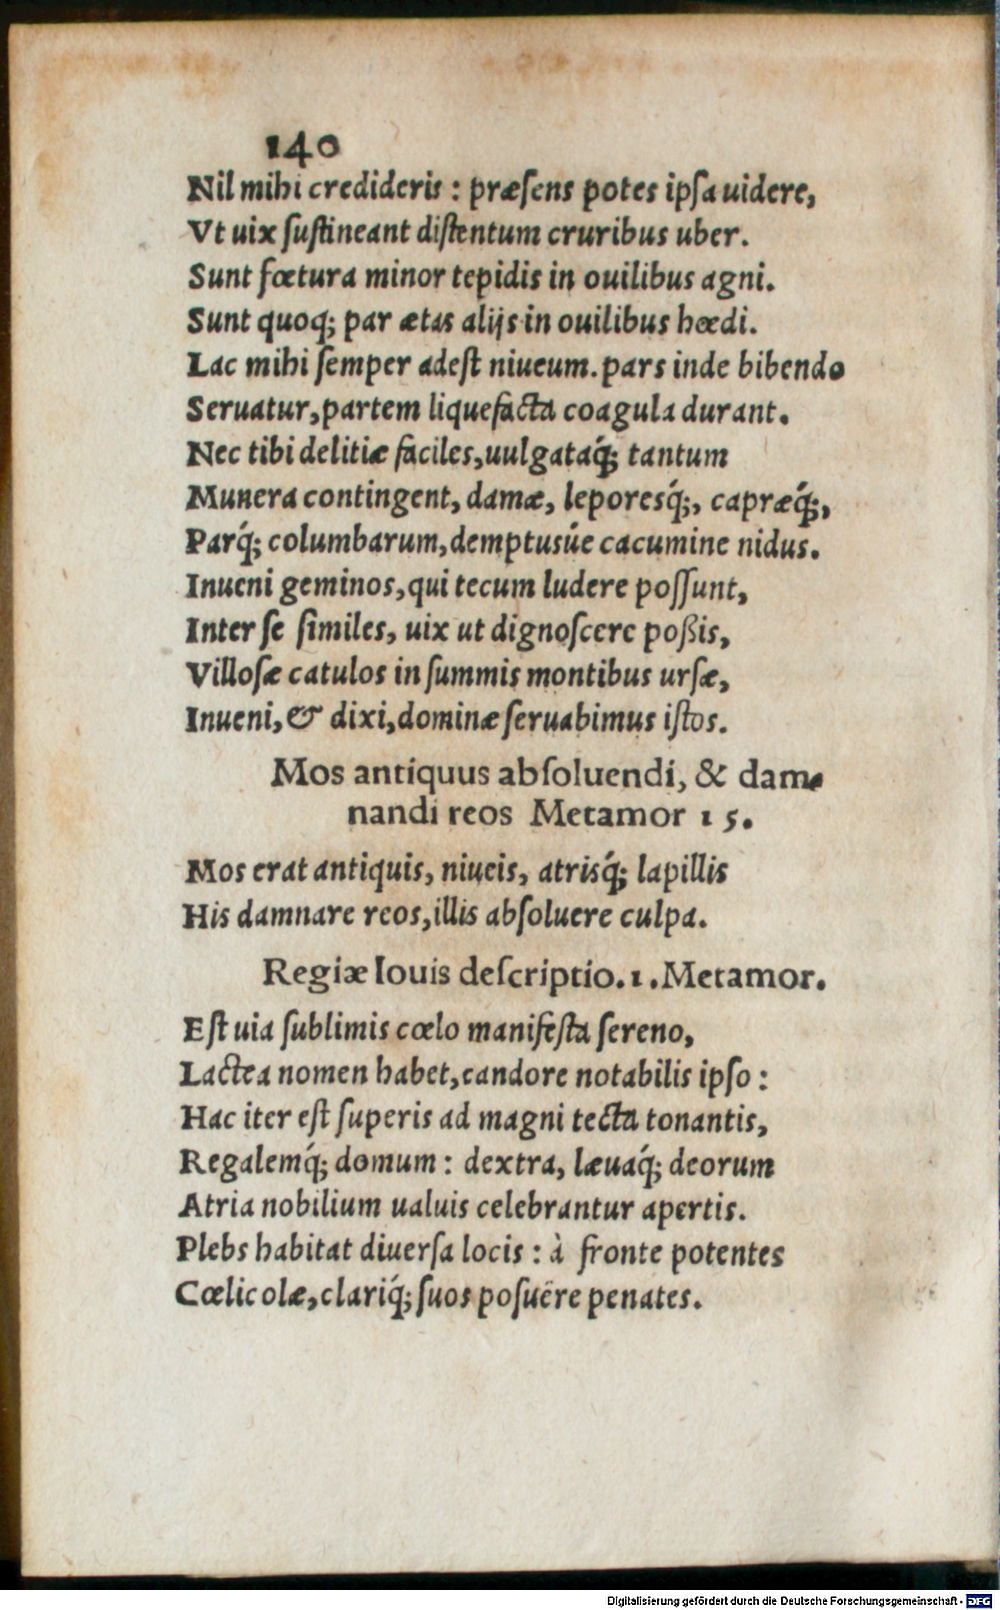 140
Nil mihi credideris : præſens potes ipſa uidere,
Vt uix ſuſtineant diſtentum cruribus uber.
Sunt fœtura minor tepidis in ouilibus agni.
Sunt quoq; par ætas alijs in ouilibus hœdi.
Lac mihi ſemper adeſt niueum. pars inde bibendo
Seruatur, partem liquefacta coagula durant.
Nec tibi delitiæ faciles, uulgataq́; tantum
Munera contingent, damæ, leporesq́;, capræq́;,
Parq́; columbarum, demptusúe cacumine nidus.
Inueni geminos, qui tecum ludere poſſunt,
Inter ſe ſimiles, uix ut dignoſcere poßis,
Villoſæ catulos in ſummis montibus urſæ,
Inueni, & dixi, dominæ ſeruabimus iſtos.
Mos antiquus abſoluendi, & dam-
nandi reos Metamor 15.
Mos erat antiquis, niueis, atrisq́; lapillis
His damnare reos, illis abſoluere culpa.
Regiæ Iouis deſcriptio. 1. Metamor.
Eſt uia ſublimis cœlo manifeſta ſereno,
Lactea nomen habet, candore notabilis ipſo :
Hac iter eſt ſuperis ad magni tecta tonantis,
Regalemq́; domum : dextra, læuaq́; deorum
Atria nobilium ualuis celebrantur apertis.
Plebs habitat diuerſa locis : à fronte potentes
Cœlicolæ, clariq́; ſuos poſuêre penates.
Digitalisierung gefördert durch die Deutsche Forschungsgemeinschaft - DFG